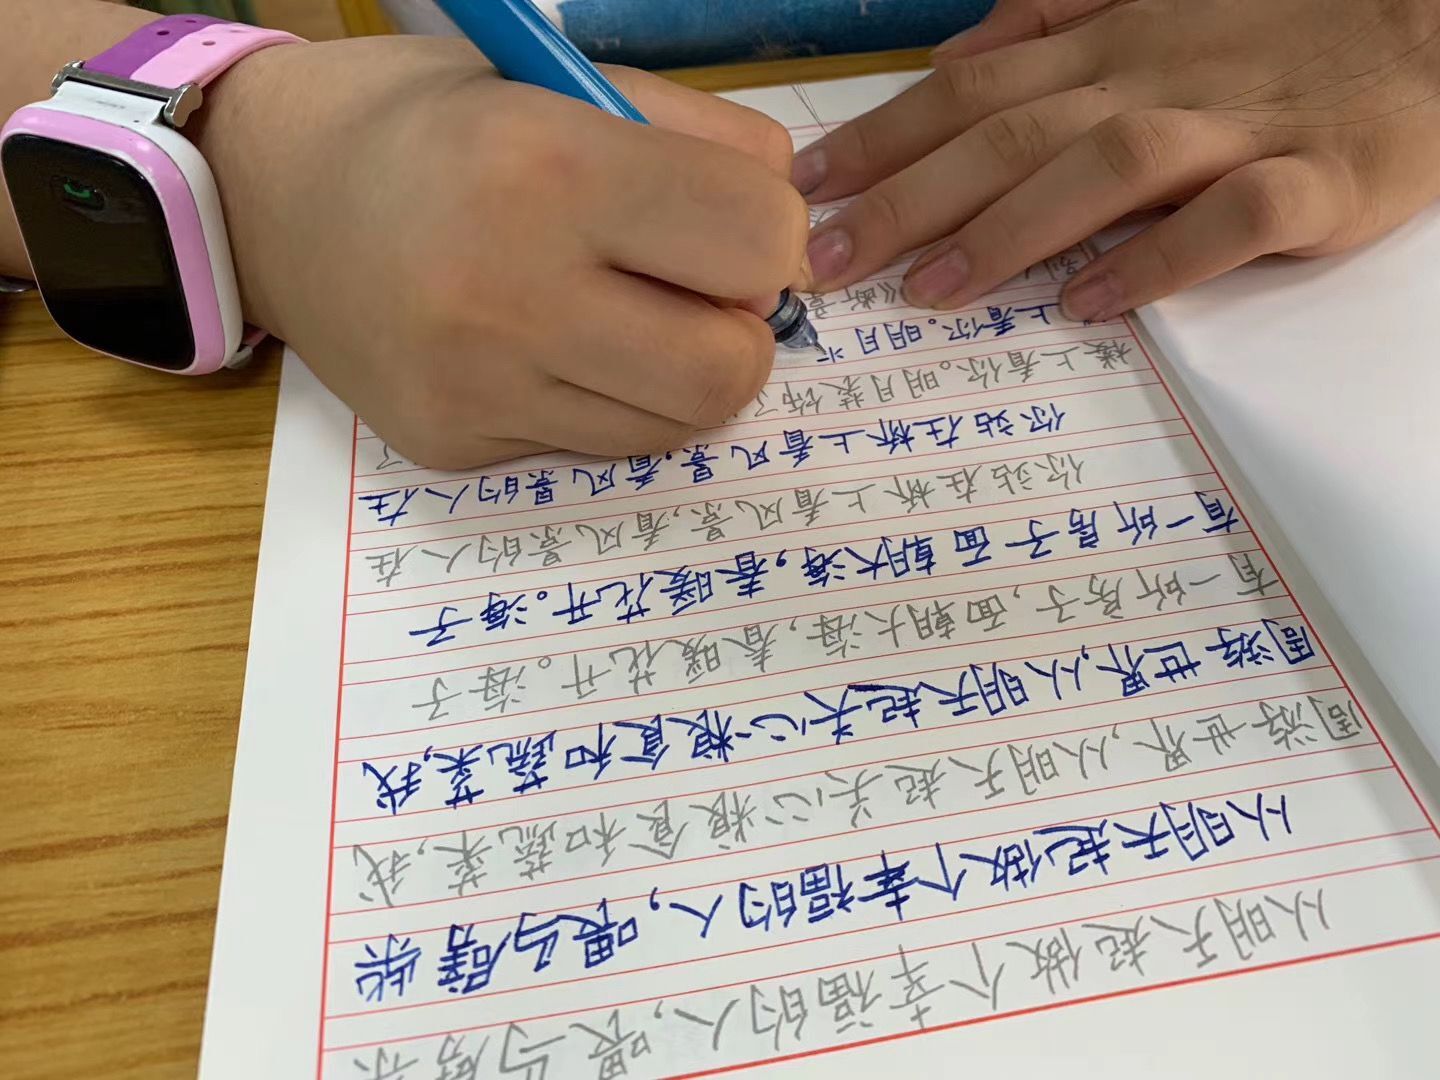 从明天起做个幸福的人,喂马劈柴
从明天起做个幸福的人,喂马劈柴
周游世界,从明天起关心粮食和蔬菜,我
周游世界,从明天起关心粮食和蔬菜,我
有一所房子,面朝大海,春暖花开。海子
有一所房子面朝大海,春暖花开。海子
你站在桥上看风景,看风景的人在
你站在桥上看风景,看风景的人在
楼上看你。明月装饰了
上看你。明月
别人《断章